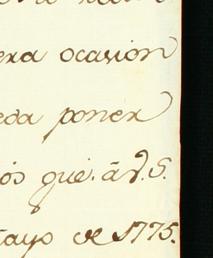 era ocasion
eda poner
ós gue. á V. S.
ayo de 1775.